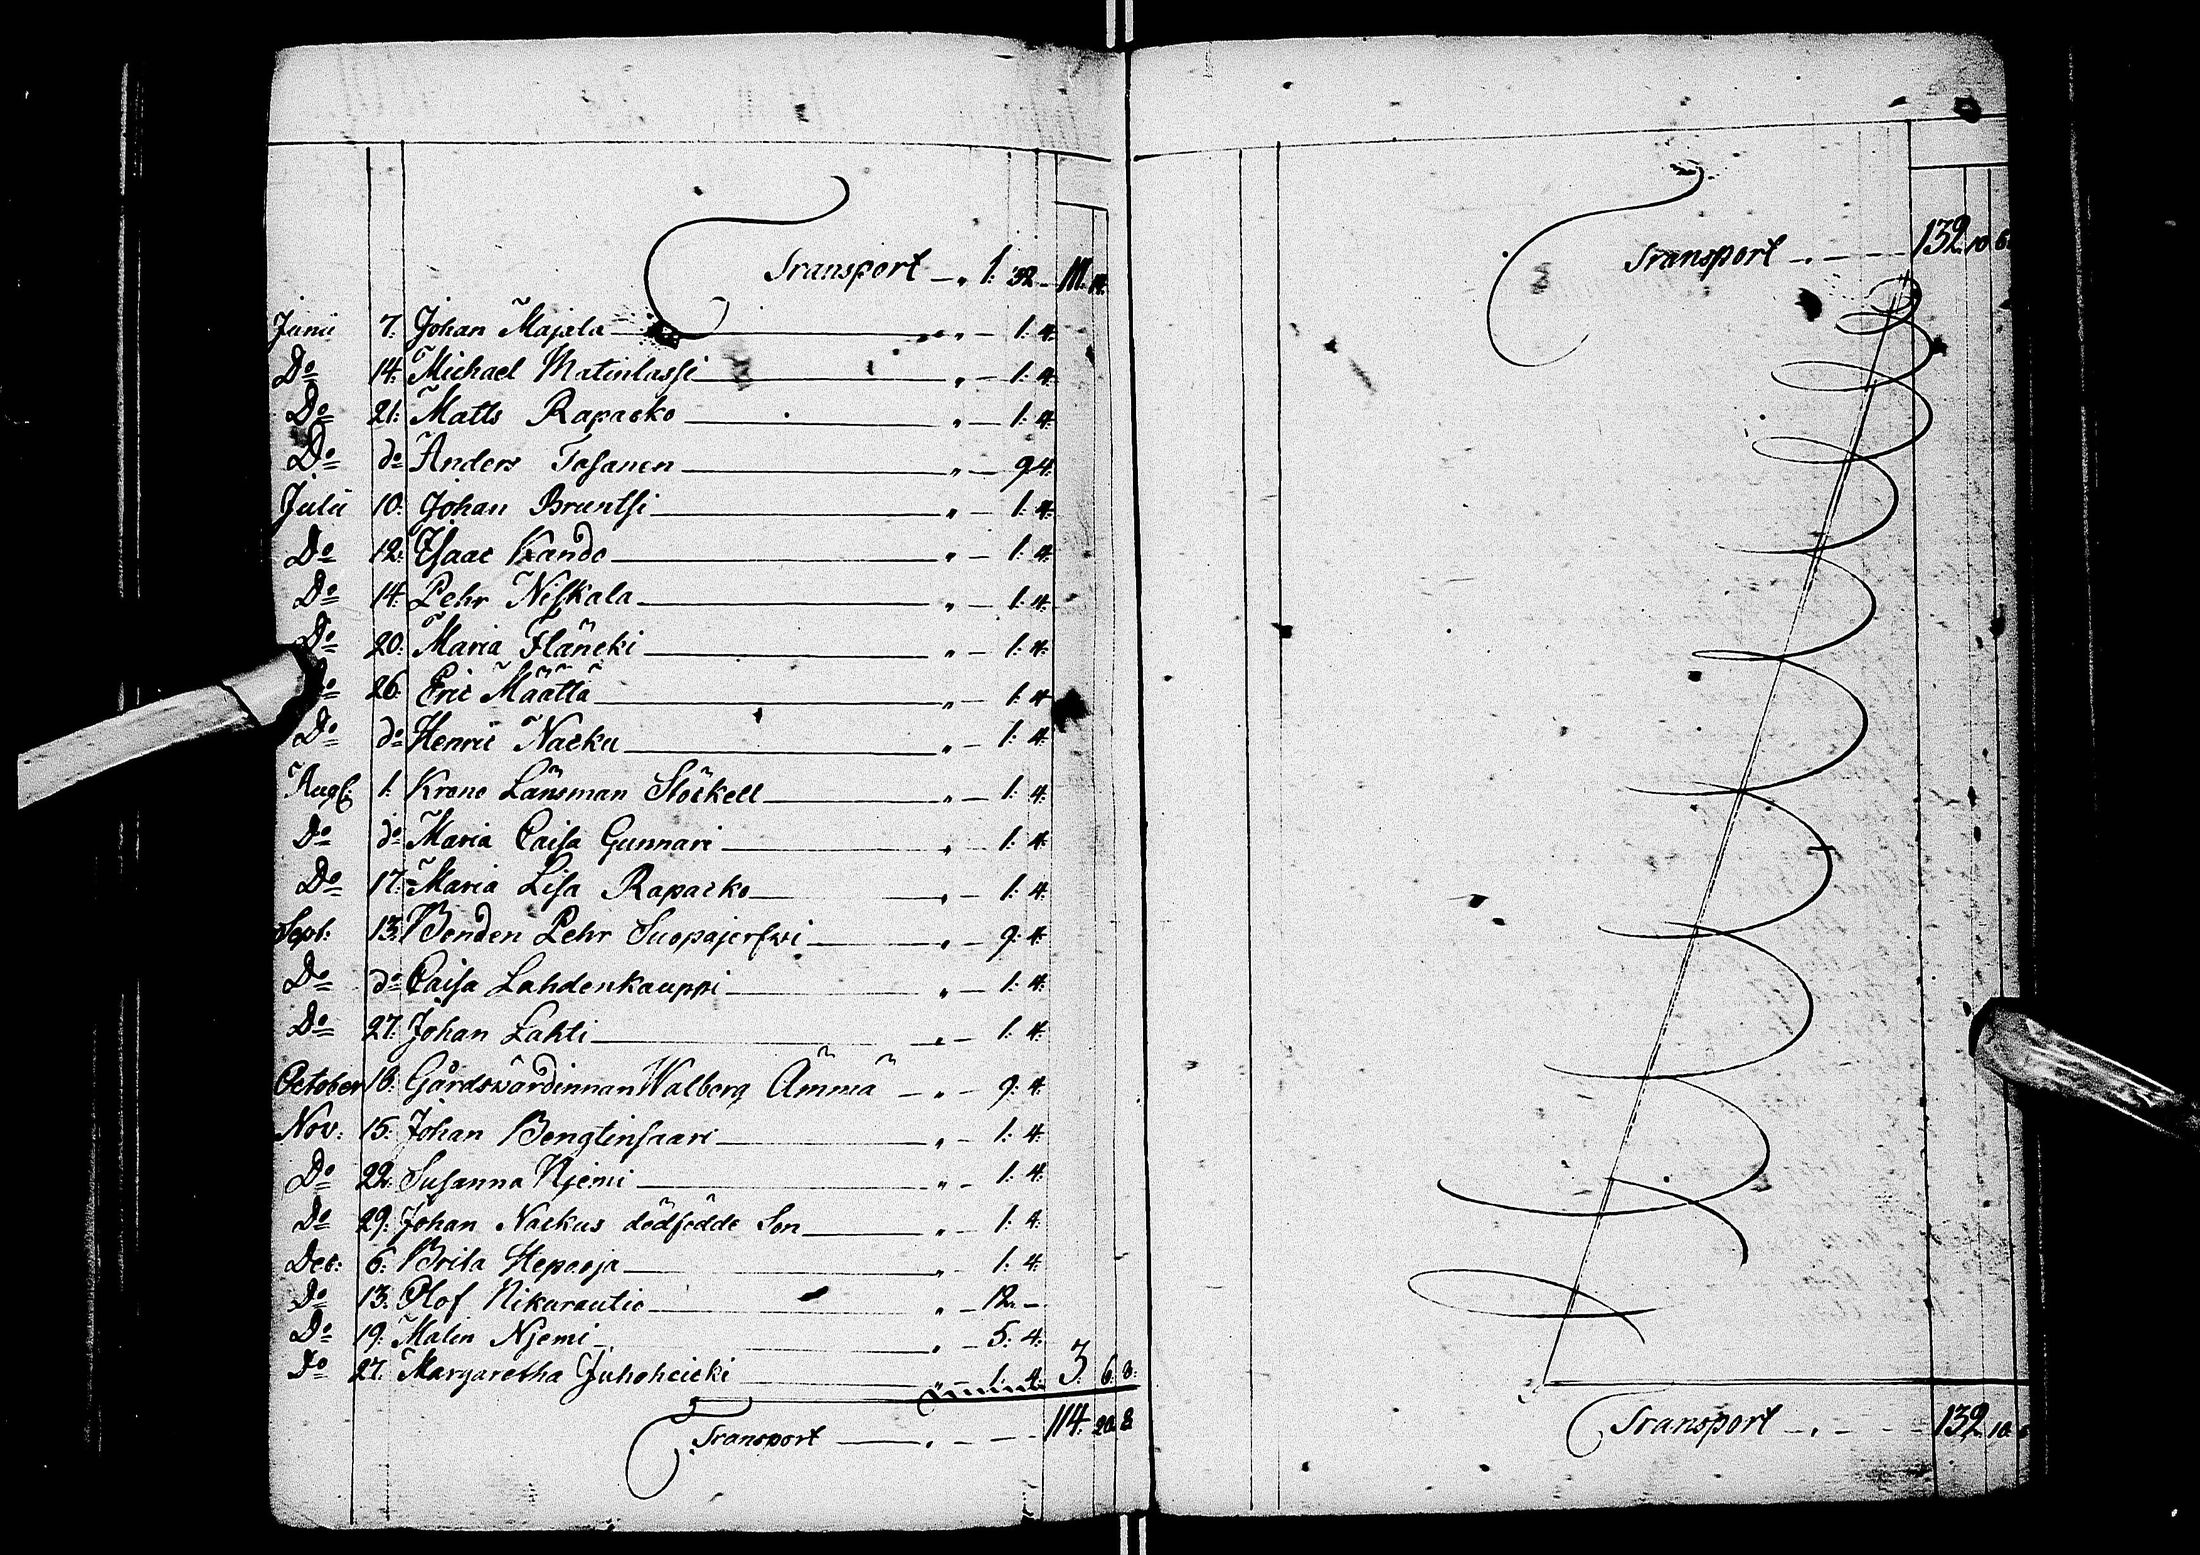 Transport — " 1: 32 — 111. 14.
Junii 7. Johan Majala — " — 1: 4.
Do 14. Michael Matinlassi — " — 1: 4.
Do 21. Matts Rapacko — " — 1: 4.
Do do Anders Tosanen — " — 9 4.
Julii 10. Johan Bruntsi — " — 1: 4.
Do 12. Isaac Kando — " — 1: 4.
Do 14. Pehr Niskala — " — 1: 4.
Do 20. Maria Häncki — " — 1: 4.
Do 26. Eric Määttä — " — 1: 4.
Do do Henric Nacku — " — 1: 4.
Aug: 1. Krono Länsman Stöckell — " — 1: 4.
Do do Maria Caisa Gunnari — " — 1: 4.
Do 17. Maria Lisa Rapacko — " — 1: 4.
Sept: 13. Bonden Pehr Suopajerfwi — " — 9: 4.
Do do Caisa Lahdenkauppi — " — 1: 4.
Do 27. Johan Lahti — " — 1: 4.
October 18. Gårdswärdinnan Walborg Ämmä — " — 9: 4.
Nov: 15. Johan Bengtinsaari — " — 1: 4.
Do 22. Susanna Njemi — " — 1: 4.
Do 29. Johan Nackus dödfödde Son — " — 1: 4.
Dec: 6. Brita Heparja — " — 1: 4.
Do 13. Olof Nikurautio — " — 12. —
Do 19. Malin Njemi — " — 5: 4.
Do 27. Margaretha Juhoheicki — " 1: 4. 3. 6. 8.
Transport — " — 114. 20. 8
Transport — " — 132. 10. 6
Transport — " — 132. 10.